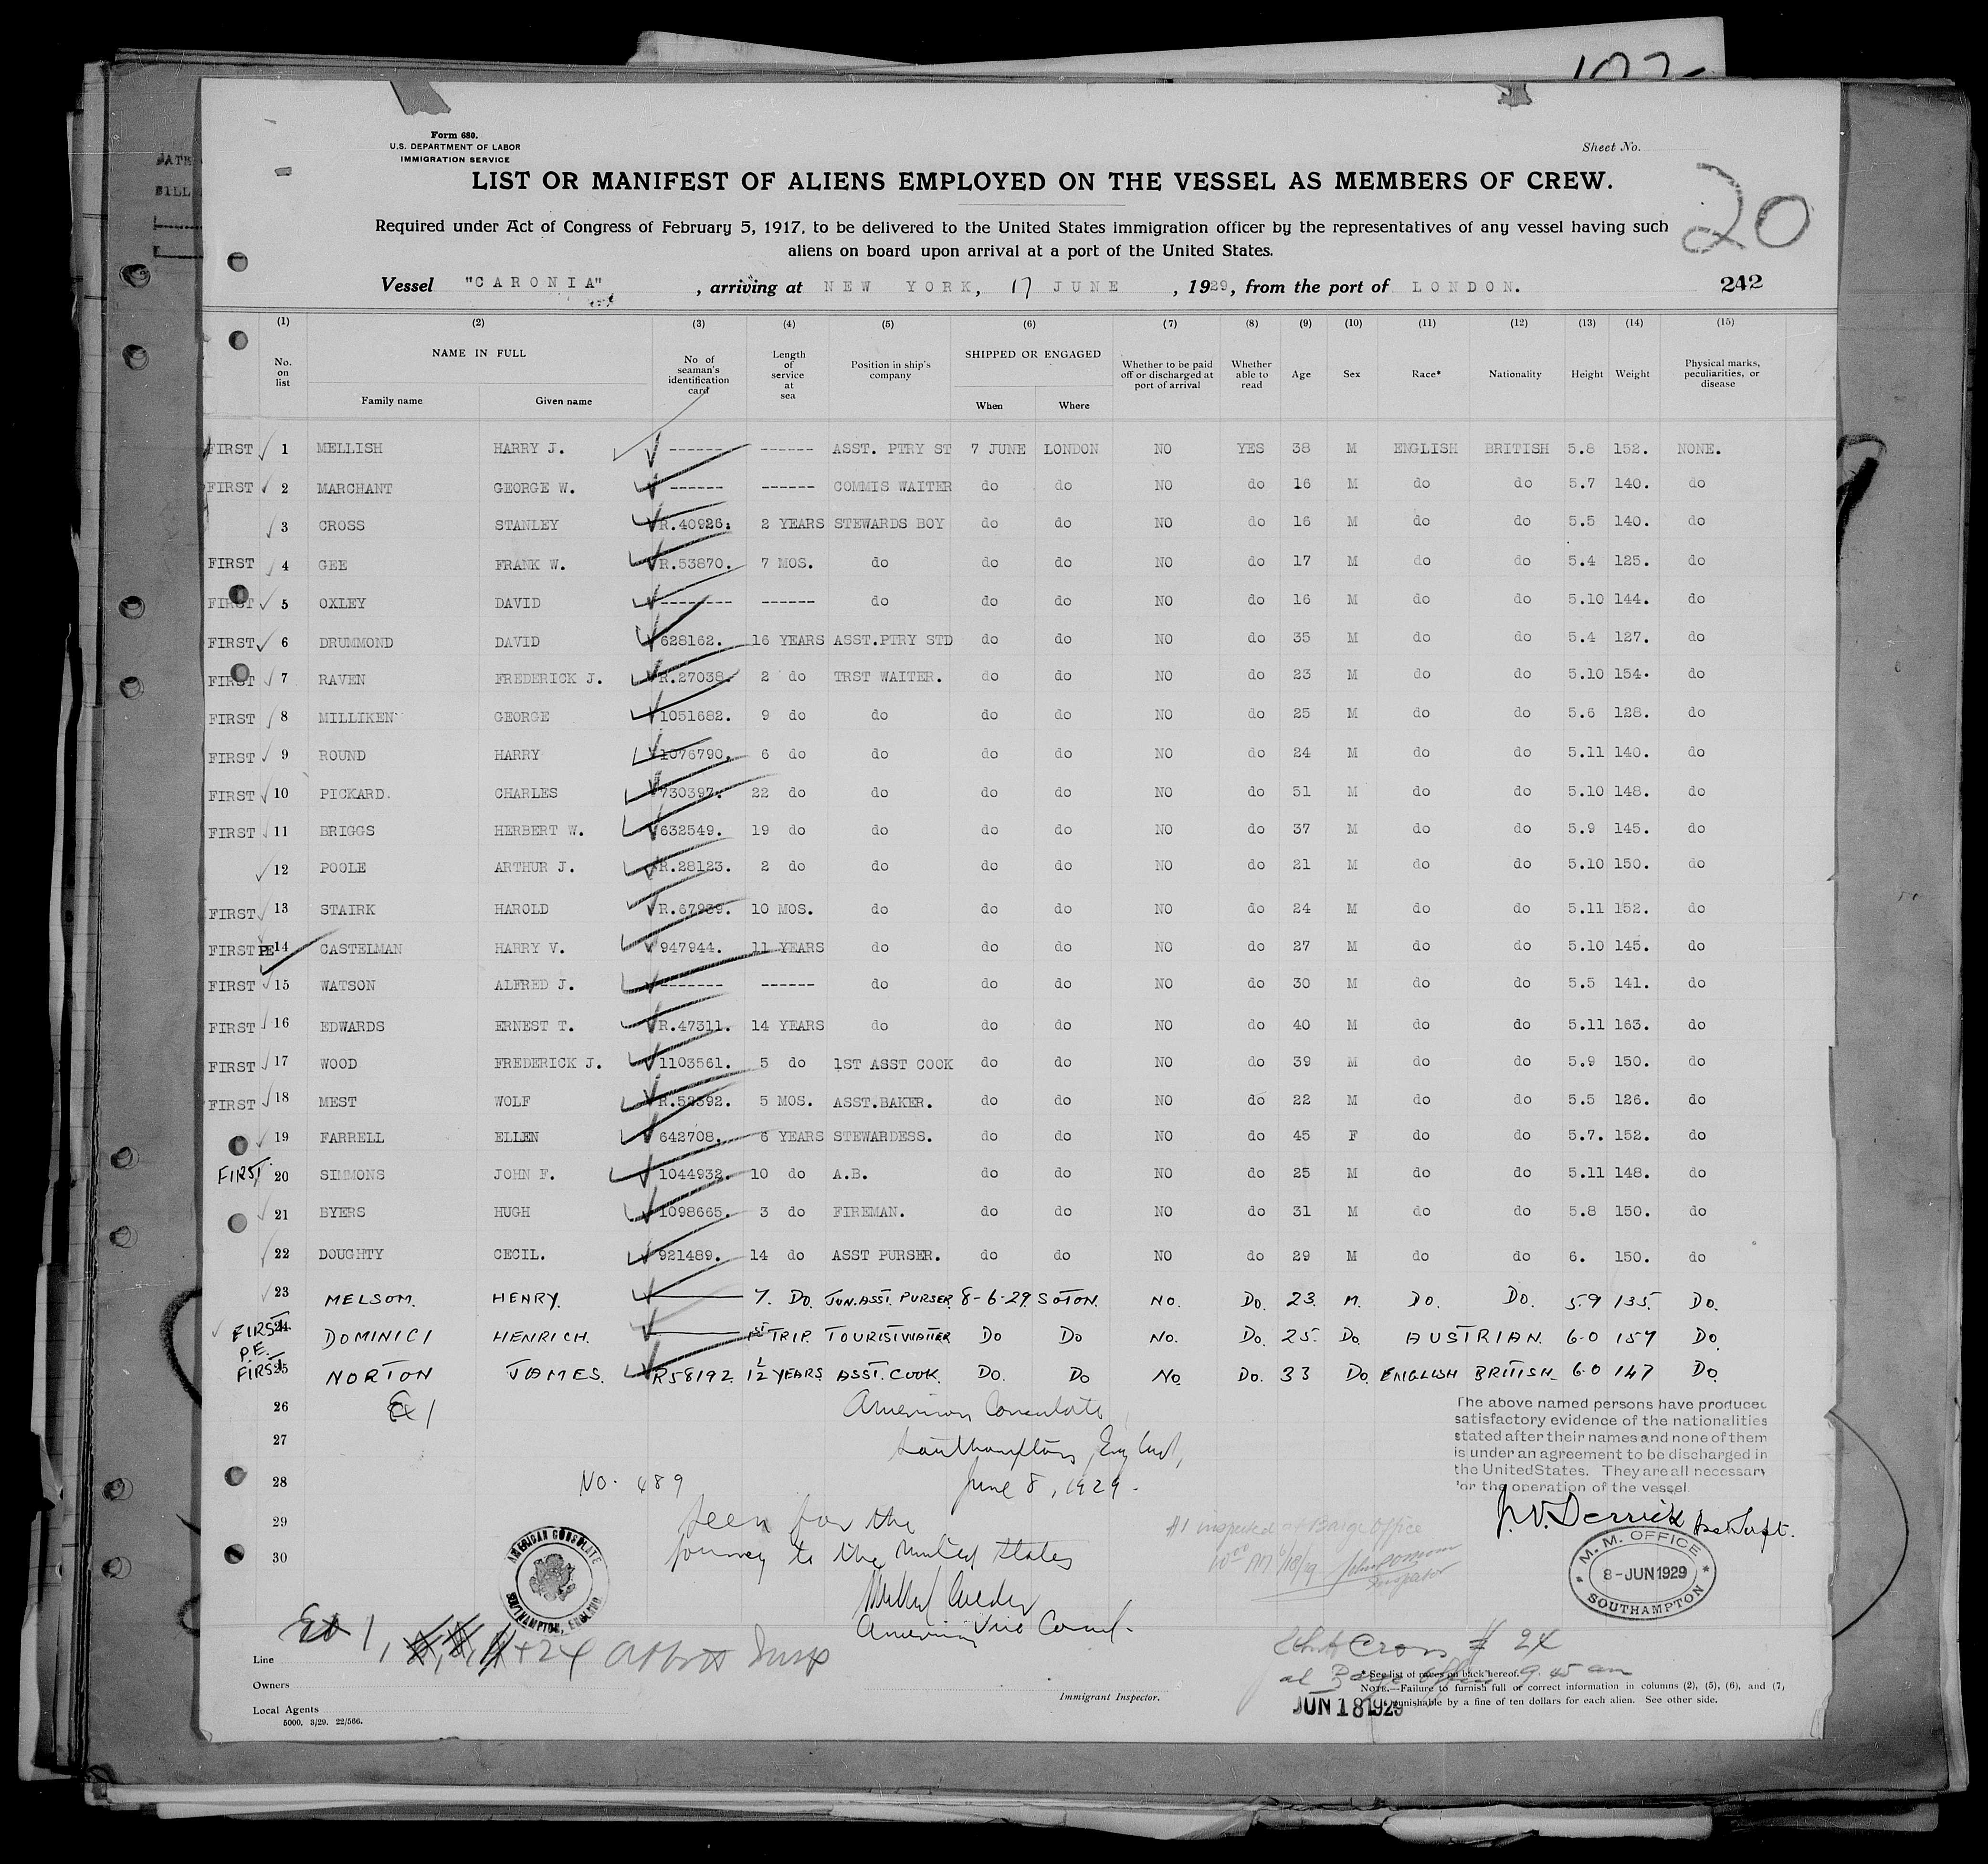 Form 680.
U.S. DEPARTMENT OF LABOR
IMMIGRATION SERVICE
Sheet No.
LIST OR MANIFEST OF ALIENS EMPLOYED ON THE VESSEL AS MEMBERS OF CREW.
20
Required under Act of Congress of February 5, 1917, to be delivered to the United States immigration officer by the representatives of any vessel having such
aliens on board upon arrival at a port of the United States.
Vessel "CARONIA" , arriving at NEW YORK, 17 JUNE , 1929, from the port of LONDON. 242
(1) (2) (3) (4) (5) (6) (7) (8) (9) (10) (11) (12) (13) (14) (15)
No. on list NAME IN FULL Family name Given name No of seaman's identification card Length of service at sea Position in ship's company SHIPPED OR ENGAGED When Where Whether to be paid off or discharged at port of arrival Whether able to read Age Sex Race* Nationality Height Weight Physical marks, peculiarities, or disease
FIRST 1 MELLISH HARRY J. ------- ------ ASST. PTRY ST 7 JUNE LONDON NO YES 38 M ENGLISH BRITISH 5.8 152. NONE.
FIRST 2 MARCHANT GEORGE W. ------ ------ COMMIS WAITER do do NO do 16 M do do 5.7 140. do
3 CROSS STANLEY R.40926. 2 YEARS STEWARDS BOY do do NO do 16 M do do 5.5 140. do
FIRST 4 GEE FRANK W. R.53870. 7 MOS. do do do NO do 17 M do do 5.4 125. do
FIRST 5 OXLEY DAVID --------- ------ do do do NO do 16 M do do 5.10 144. do
FIRST 6 DRUMMOND DAVID 628162. 16 YEARS ASST.PTRY STD do do NO do 35 M do do 5.4 127. do
FIRST 7 RAVEN FREDERICK J. R.27038. 2 do TRST WAITER. do do NO do 23 M do do 5.10 154. do
FIRST 8 MILLIKEN GEORGE 1051682. 9 do do do do NO do 25 M do do 5.6 128. do
FIRST 9 ROUND HARRY 1076790. 6 do do do do NO do 24 M do do 5.11 140. do
FIRST 10 PICKARD. CHARLES 730397. 22 do do do do NO do 51 M do do 5.10 148. do
FIRST 11 BRIGGS HERBERT W. 632549. 19 do do do do NO do 37 M do do 5.9 145. do
12 POOLE ARTHUR J. R.28123. 2 do do do do NO do 21 M do do 5.10 150. do
FIRST 13 STAIRK HAROLD R.67939. 10 MOS. do do do NO do 24 M do do 5.11 152. do
FIRST PE 14 CASTELMAN HARRY V. 947944. 11 YEARS do do do NO do 27 M do do 5.10 145. do
FIRST 15 WATSON ALFRED J. ------- ------ do do do NO do 30 M do do 5.5 141. do
FIRST 16 EDWARDS ERNEST T. R.47311. 14 YEARS do do do NO do 40 M do do 5.11 163. do
FIRST 17 WOOD FREDERICK J. 1103561. 5 do 1ST ASST COOK do do NO do 39 M do do 5.9 150. do
FIRST 18 MEST WOLF R.52392. 5 MOS. ASST.BAKER. do do NO do 22 M do do 5.5 126. do
19 FARRELL ELLEN 642708. 6 YEARS STEWARDESS. do do NO do 45 F do do 5.7. 152. do
FIRST 20 SIMMONS JOHN F. 1044932. 10 do A.B. do do NO do 25 M do do 5.11 148. do
21 BYERS HUGH 1098665. 3 do FIREMAN. do do NO do 31 M do do 5.8 150. do
22 DOUGHTY CECIL. 921489. 14 do ASST PURSER. do do NO do 29 M do do 6. 150. do
23 MELSOM. HENRY. 7. DO. JUN.ASST. PURSER 8-6-29 SOTON. NO. DO. 23. M. DO. DO. 5.9 135. DO.
FIRST 24 DOMINICI HENRICH. 1ST TRIP. TOURIST WAITER DO DO NO. DO. 25. DO. AUSTRIAN. 6.0 157 DO.
P.E. FIRST 25 NORTON JAMES. R58192. 1½ YEARS ASST. COOK. DO. DO NO. DO. 33 DO. ENGLISH BRITISH. 6.0 147 DO.
26 Ex 1 American Consulate,
27 Southampton, England,
28 No. 489 June 8, 1929.
29 Seen for the
30 journey to the United States
American Vice Consul.
AMERICAN CONSULATE
SOUTHAMPTON, ENGLAND
The above named persons have produced
satisfactory evidence of the nationalities
stated after their names and none of them
is under an agreement to be discharged in
the United States. They are all necessary
for the operation of the vessel.
J. V. Derrick Asst Supt.
M. M. OFFICE
8-JUN 1929
SOUTHAMPTON
#1 inspected at Barge Office
10 00 AM 6/18/29
Inspector
Ex 1, + 24 Abbott Insp
Cross # 24
at Barge Office 9.45 am
JUN 18 1929
Line
Owners
Local Agents
5000. 3/29. 22/566.
Immigrant Inspector.
* See list of races on back hereof.
NOTE.—Failure to furnish full or correct information in columns (2), (5), (6), and (7),
is punishable by a fine of ten dollars for each alien. See other side.